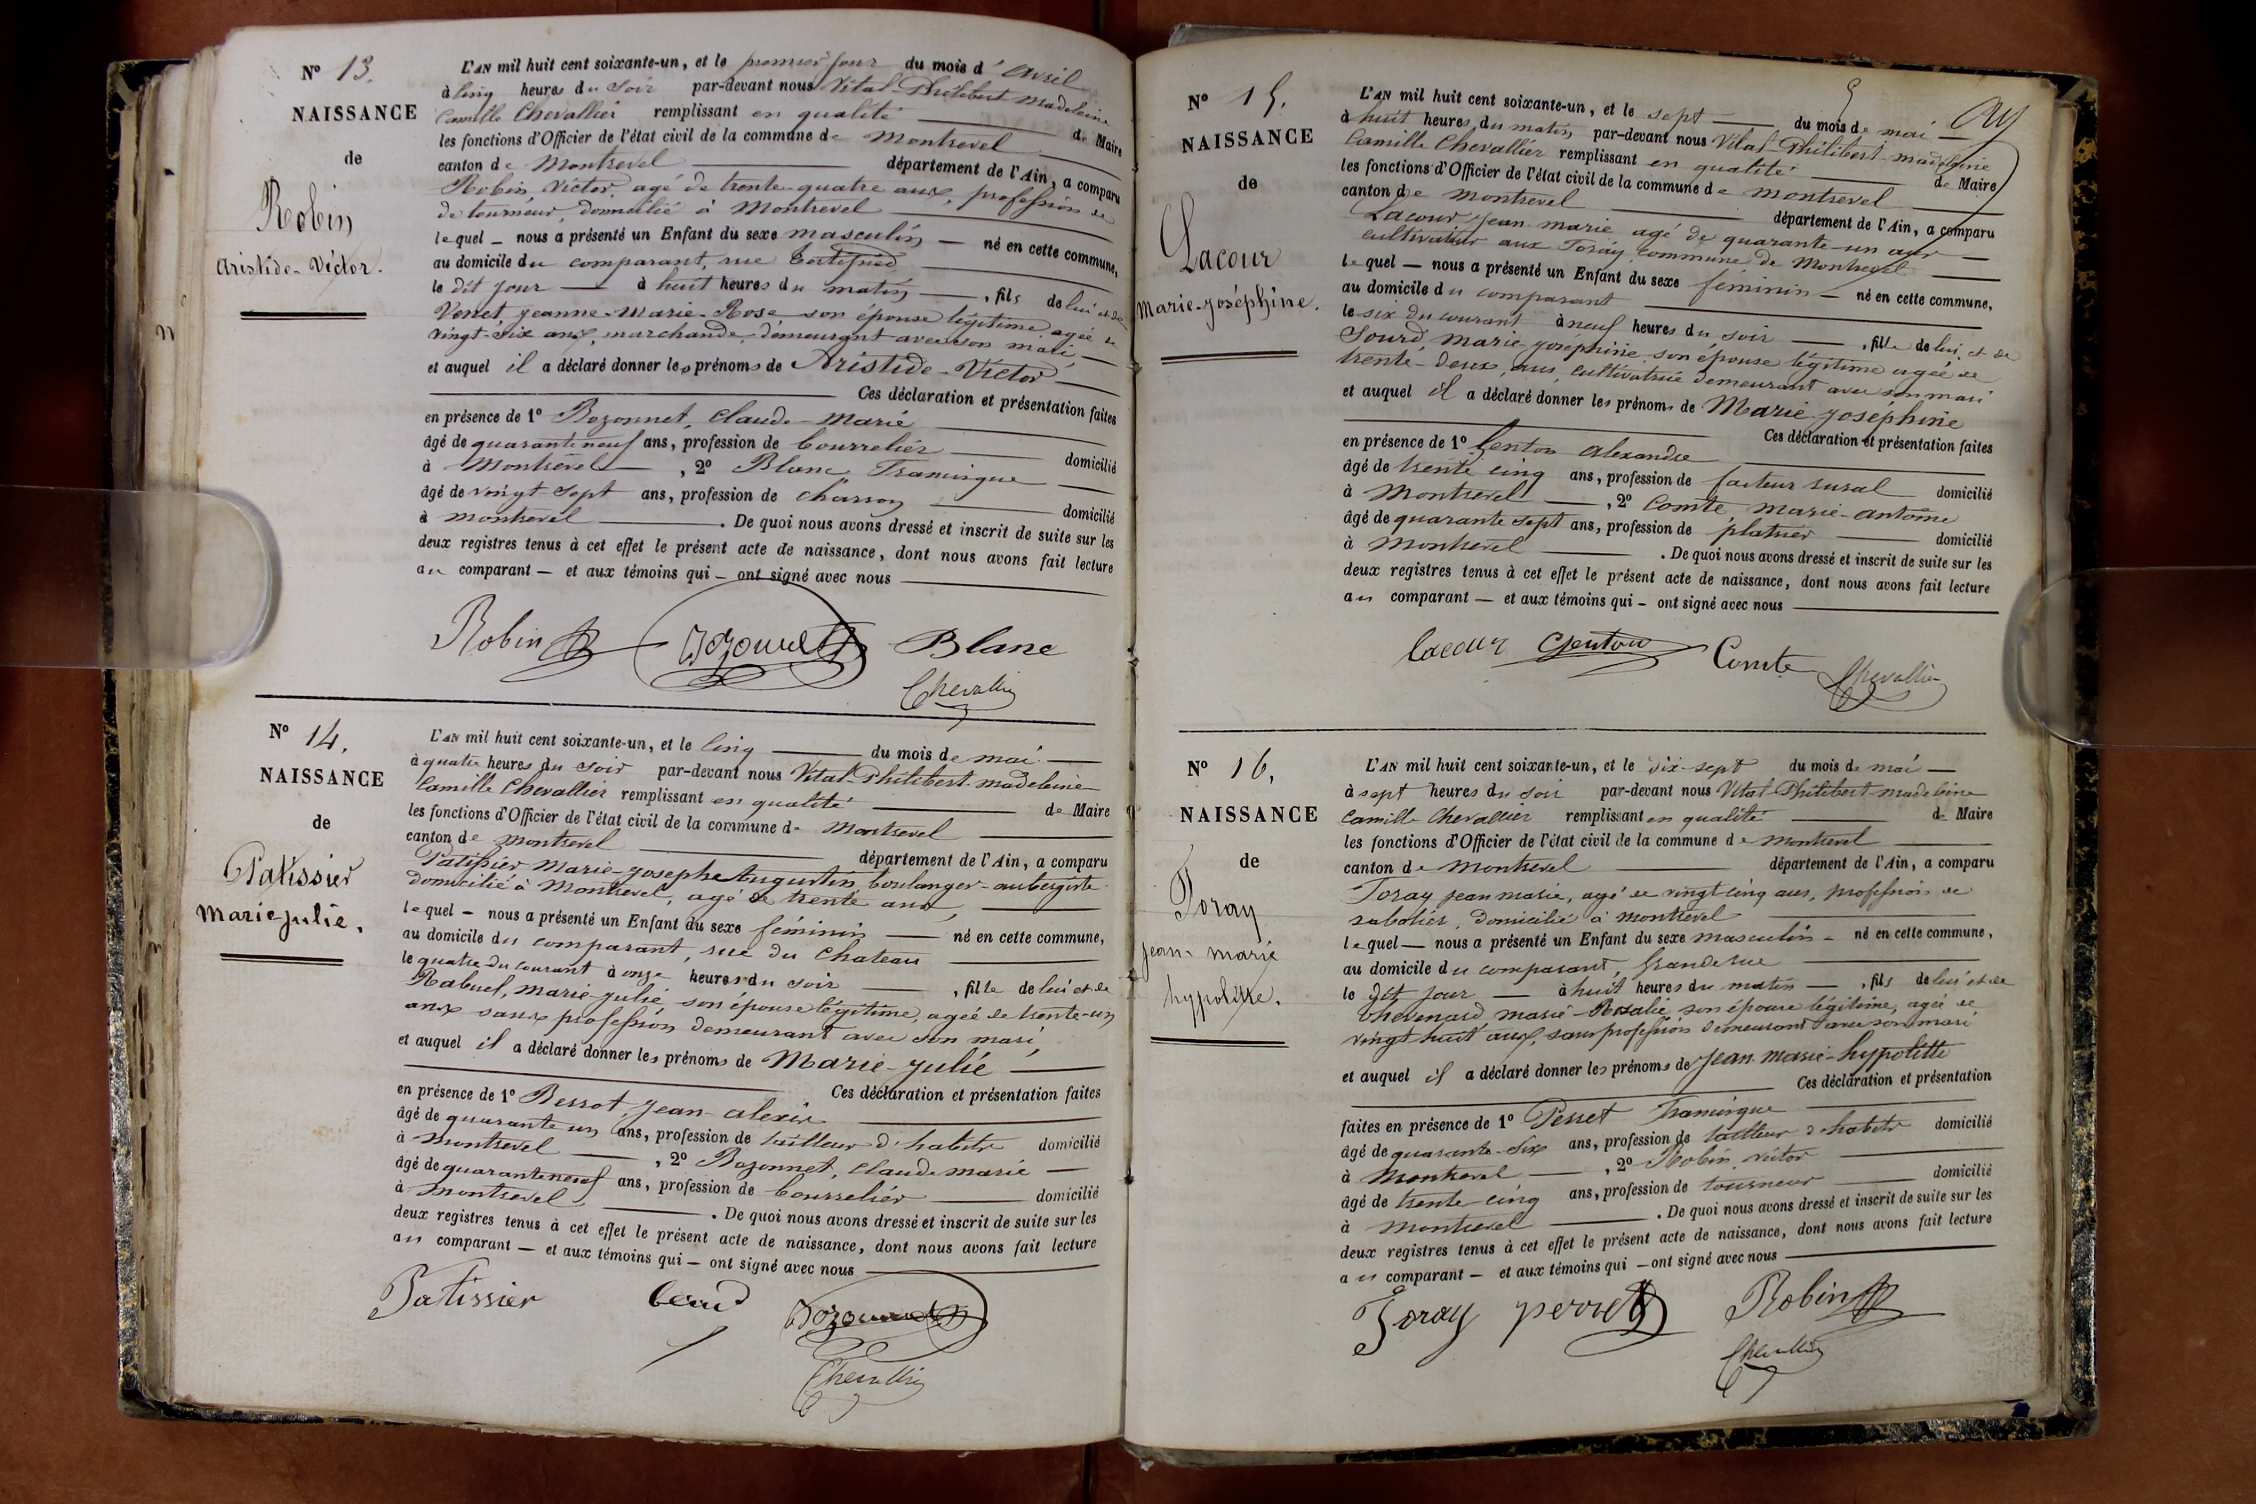 N° 13.
NAISSANCE
de
Robin
Aristide-Victor.
L'AN mil huit cent soixante-un, et le premier jour du mois d'avril
à cinq heures du soir par-devant nous Vital-Philibert Madeleine
Camille Chevallier remplissant en qualité de Maire
les fonctions d'Officier de l'état civil de la commune de Montrevel
canton de Montrevel département de l'Ain, a comparu
Robin Victor, agé de trente-quatre ans, profession de
de tourneur, domicilié à Montrevel
lequel — nous a présenté un Enfant du sexe masculin — né en cette commune,
au domicile du comparant, rue
le dit jour — à huit heures du matin —, fils de lui et de
Venet Jeanne-Marie-Rose son épouse légitime agée de
vingt-six ans, marchande, demeurant avec son mari
et auquel il a déclaré donner les prénoms de Aristide-Victor
Ces déclaration et présentation faites
en présence de 1° Bozonnet, Claude-Marie
âgé de quarante neuf ans, profession de bourrelier domicilié
à Montrevel, 2° Blanc
âgé de vingt-sept ans, profession de charron domicilié
à montrevel. De quoi nous avons dressé et inscrit de suite sur les
deux registres tenus à cet effet le présent acte de naissance, dont nous avons fait lecture
au comparant — et aux témoins qui — ont signé avec nous
Robin Bozonnet Blanc
Chevallier
N° 14.
NAISSANCE
de
Patissier
Marie-julie.
L'AN mil huit cent soixante-un, et le cinq du mois de mai
à quatre heures du soir par-devant nous Vital-Philibert-madeleine
Camille Chevallier remplissant en qualité de Maire
les fonctions d'Officier de l'état civil de la commune de Montrevel
canton de Montrevel département de l'Ain, a comparu
Patissier Marie-josephe Augustin, boulanger-aubergiste
domicilié à Montrevel, agé de trente ans,
lequel — nous a présenté un Enfant du sexe féminin — né en cette commune,
au domicile du comparant, rue du Chateau
le quatre du courant à onze heures du soir, fille de lui et de
Rabuel, marie-julie, son épouse légitime, agée de trente-un
ans sans profession demeurant avec son mari,
et auquel il a déclaré donner les prénoms de Marie-Julie
Ces déclaration et présentation faites
en présence de 1° jean-alexis
âgé de quarante un ans, profession de tailleur d'habits domicilié
à montrevel, 2° Bozonnet, Claude marie
âgé de quarante neuf ans, profession de bourrelier domicilié
à montrevel. De quoi nous avons dressé et inscrit de suite sur les
deux registres tenus à cet effet le présent acte de naissance, dont nous avons fait lecture
au comparant — et aux témoins qui — ont signé avec nous
Patissier Bozonnet
Chevallier
N° 15.
NAISSANCE
de
Lacour
Marie-joséphine.
L'AN mil huit cent soixante-un, et le sept du mois de mai
à huit heures du matin par-devant nous Vital-Philibert-madeleine
Camille Chevallier remplissant en qualité de Maire
les fonctions d'Officier de l'état civil de la commune de montrevel
canton de montrevel département de l'Ain, a comparu
Lacour jean marie agé de quarante-un ans
cultivateur aux Toray, commune de Montrevel
lequel — nous a présenté un Enfant du sexe féminin — né en cette commune,
au domicile du comparant
le six du courant à neuf heures du soir, fille de lui et de
Sourd, marie josephine, son épouse légitime agée de
trente-deux ans, cultivatrice demeurant avec son mari
et auquel il a déclaré donner les prénoms de Marie-joséphine
Ces déclaration et présentation faites
en présence de 1° Genton alexandre
âgé de trente cinq ans, profession de facteur rural domicilié
à Montrevel, 2° Comte, marie-antoine
âgé de quarante sept ans, profession de platrier domicilié
à Montrevel. De quoi nous avons dressé et inscrit de suite sur les
deux registres tenus à cet effet le présent acte de naissance, dont nous avons fait lecture
au comparant — et aux témoins qui — ont signé avec nous
Lacour Genton Comte
Chevallier
N° 16.
NAISSANCE
de
Toray
jean-marie
hypolitte.
L'AN mil huit cent soixante-un, et le dix-sept du mois de mai —
à sept heures du soir par-devant nous Vital-Philibert-madeleine
Camille Chevallier remplissant en qualité de Maire
les fonctions d'Officier de l'état civil de la commune de montrevel
canton de montrevel département de l'Ain, a comparu
Toray jean marie, agé de vingt cinq ans, profession de
sabotier, domicilié à montrevel
lequel — nous a présenté un Enfant du sexe masculin — né en cette commune,
au domicile du comparant, Grande rue
le dit jour — à huit heures du matin —, fils de lui et de
Thevenard marie-Rosalie, son épouse légitime, agée de
vingt huit ans, sans profession demeurant avec son mari
et auquel il a déclaré donner les prénoms de jean-marie-hypolitte
Ces déclaration et présentation
faites en présence de 1° Perret
âgé de quarante-six ans, profession de tailleur d'habits domicilié
à Montrevel, 2° Robin, victor
âgé de trente-cinq ans, profession de tourneur domicilié
à montrevel. De quoi nous avons dressé et inscrit de suite sur les
deux registres tenus à cet effet le présent acte de naissance, dont nous avons fait lecture
au comparant — et aux témoins qui — ont signé avec nous
Toray perret Robin
Chevallier